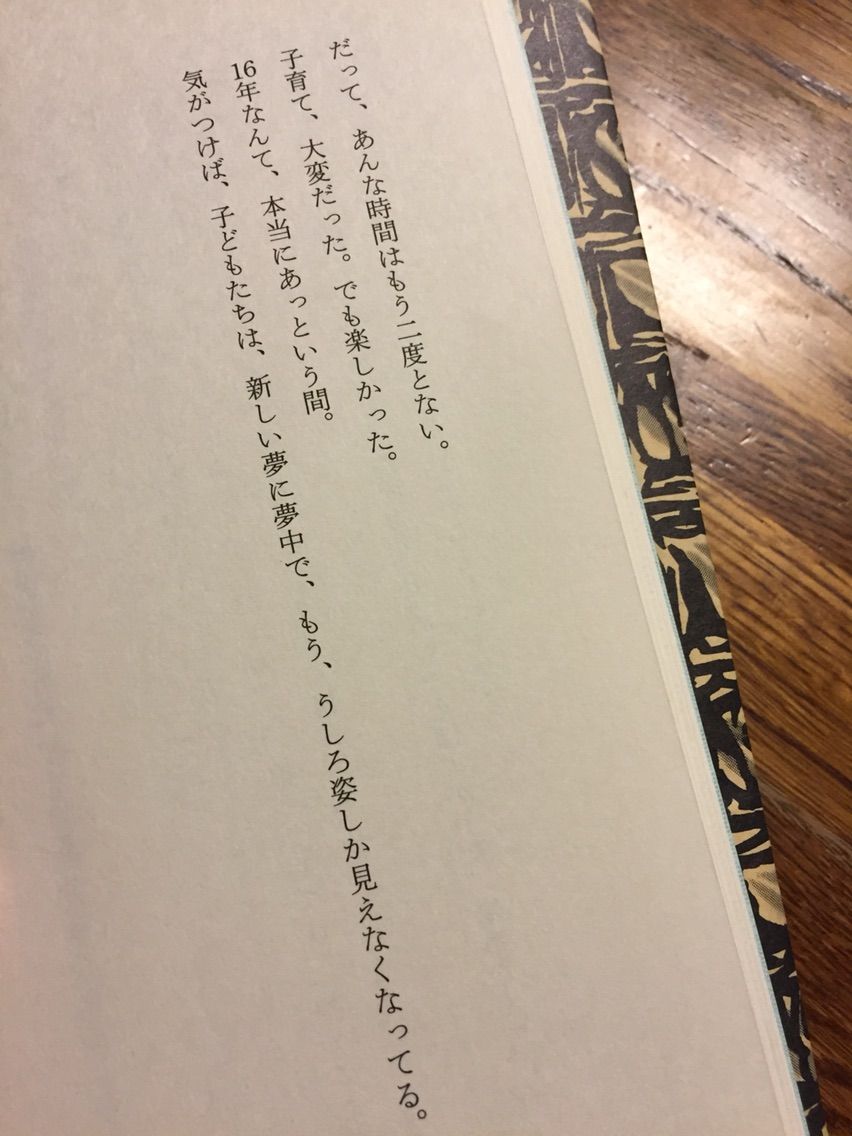 だって、あんな時間はもう二度とない。
子育て、大変だった。でも楽しかった。
16年なんて、本当にあっという間。
気がつけば、子どもたちは、新しい夢に夢中で、もう、うしろ姿しか見えなくなってる。